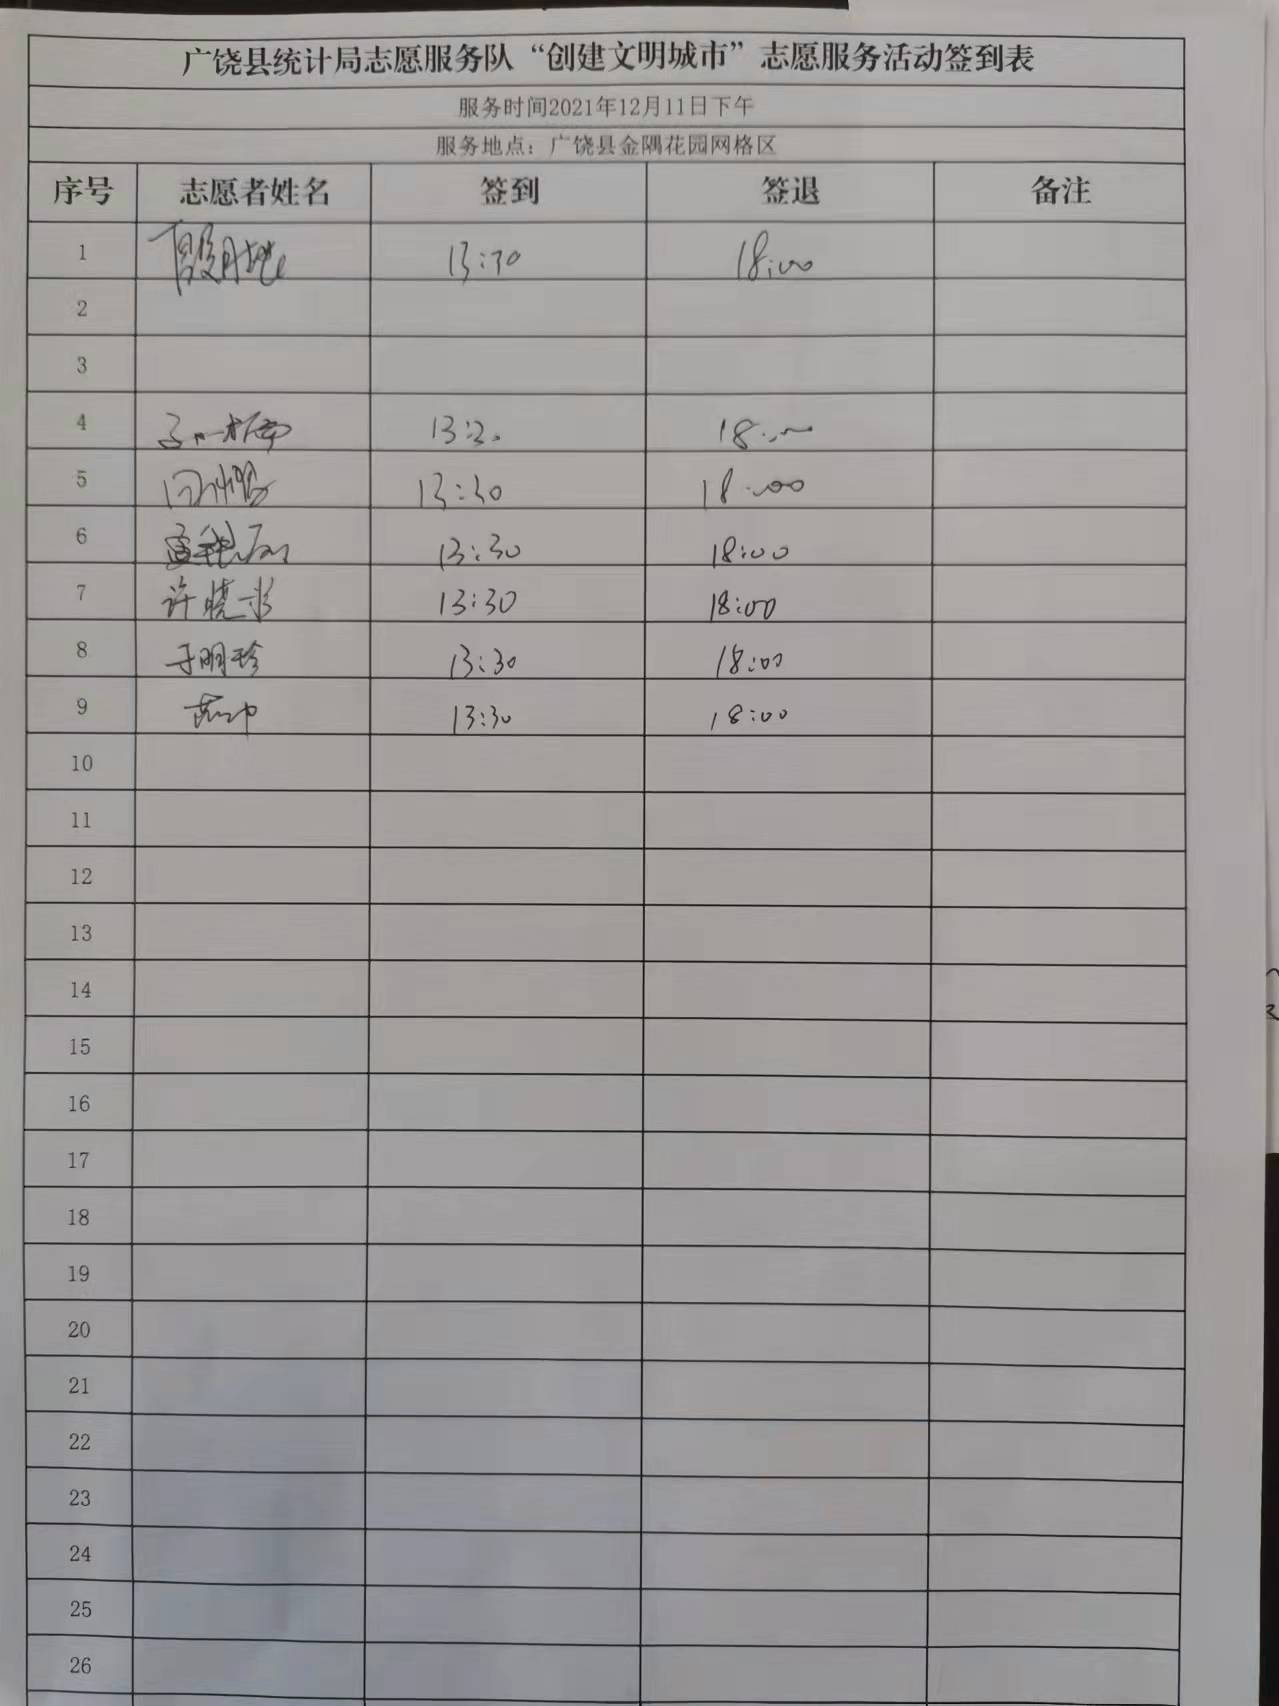 广饶县统计局志愿服务队“创建文明城市”志愿服务活动签到表
服务时间2021年12月11日下午
服务地点：广饶县金隅花园网格区
序号 志愿者姓名 签到 签退 备注
1 13:30 18:00
2
3
4 13:30 18:00
5 13:30 18:00
6 13:30 18:00
7 许晓彩 13:30 18:00
8 于明珍 13:30 18:00
9 13:30 18:00
10
11
12
13
14
15
16
17
18
19
20
21
22
23
24
25
26